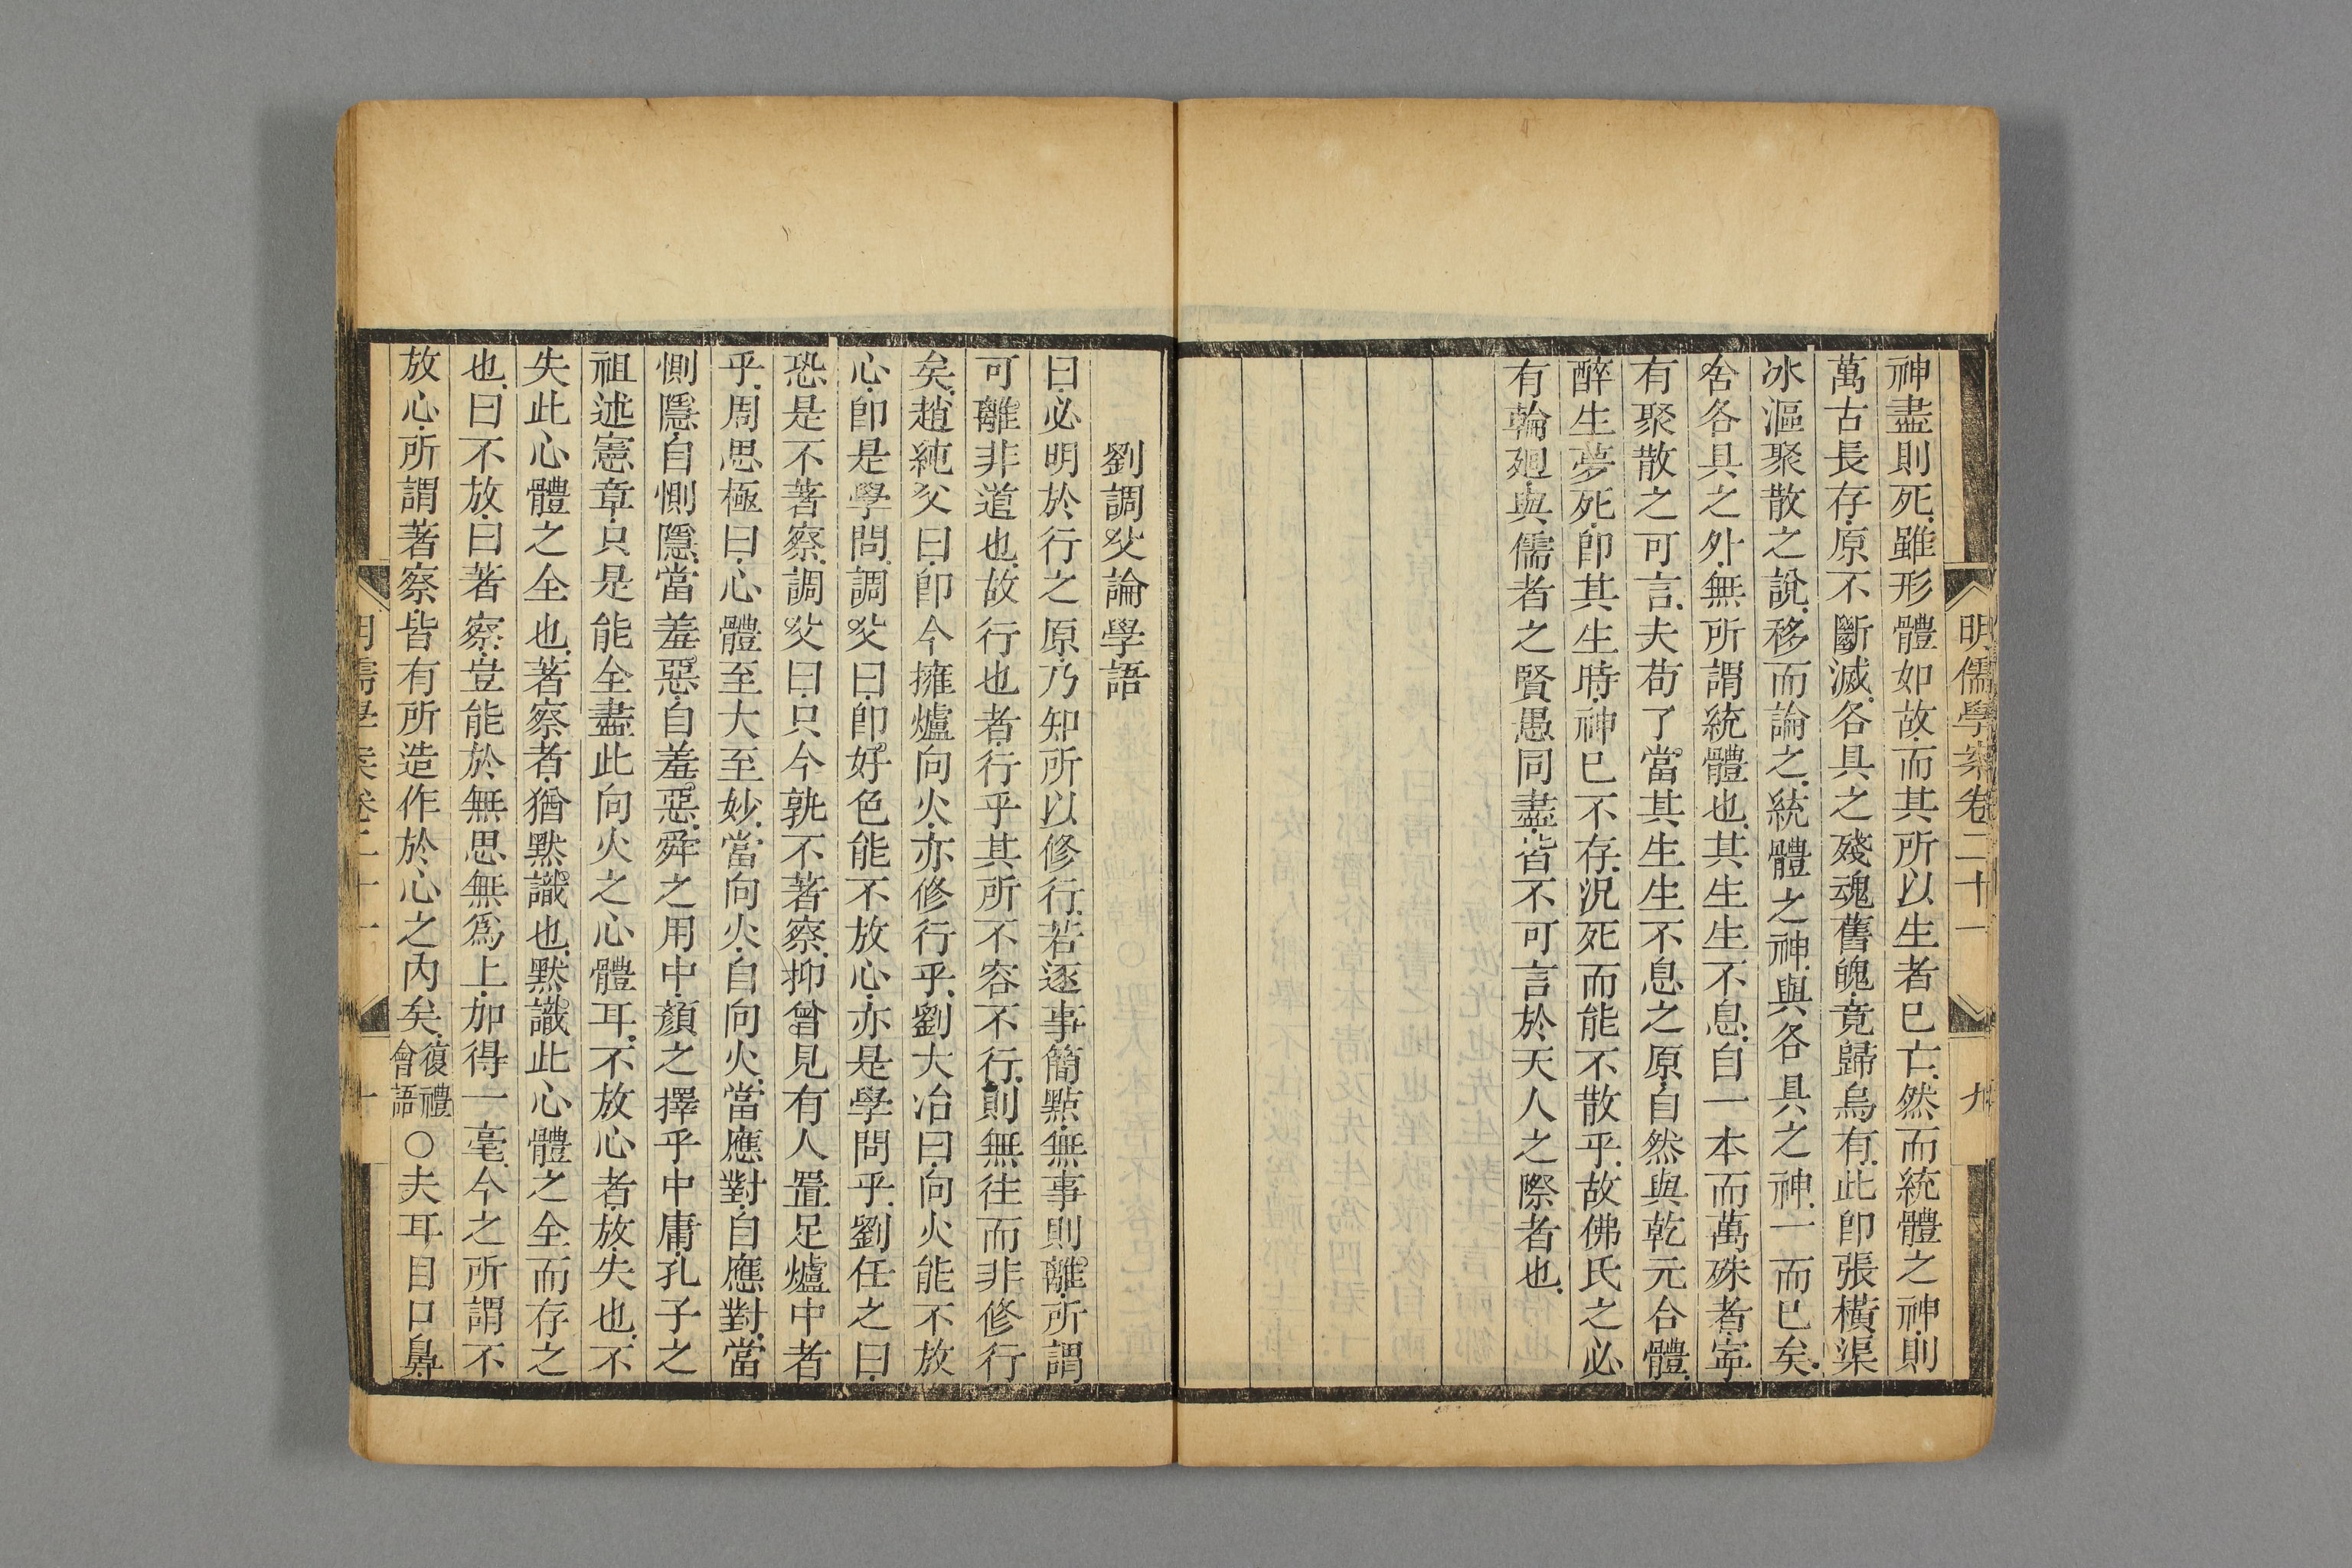 明儒學案卷二十一
九
神盡則死.雖形體如故.而其所以生者已亡.然而統體之神.則
萬古長存.原不斷滅.各具之殘魂舊魄.竟歸烏有.此卽張橫渠
冰漚聚散之說.移而論之.統體之神.與各具之神.一而已矣.
舍各具之外.無所謂統體也.其生生不息.自一本而萬殊者.寧
有聚散之可言.夫苟了當其生生不息之原.自然與乾元合體.
醉生夢死.卽其生時.神已不存.況死而能不散乎.故佛氏之必
有輪廻與.儒者之賢愚同盡.皆不可言於天人之際者也.
劉調父論學語
曰.必明於行之原.乃知所以修行.若逐事簡點.無事則離.所謂
可離非道也.故行也者.行乎其所不容不行.則無往而非修行
矣.趙純父曰.卽今擁爐向火.亦修行乎.劉大冶曰.向火能不放
心.卽是學問.調父曰.卽好色能不放心.亦是學問乎.劉任之曰.
恐是不著察.調父曰.只今孰不著察.抑曾見有人置足爐中者
乎.周思極曰.心體至大至妙.當向火.自向火.當應對.自應對.當
惻隱.自惻隱.當羞惡.自羞惡.舜之用中.顏之擇乎中庸.孔子之
祖述憲章.只是能全盡此向火之心體耳.不放心者.放失也.不
失此心體之全也.著察者.猶默識也.默識此心體之全而存之
也.曰不放.曰著察.豈能於無思無爲上.加得一毫.今之所謂不
放心.所謂著察.皆有所造作於心之內矣.復禮會語○夫耳目口鼻.